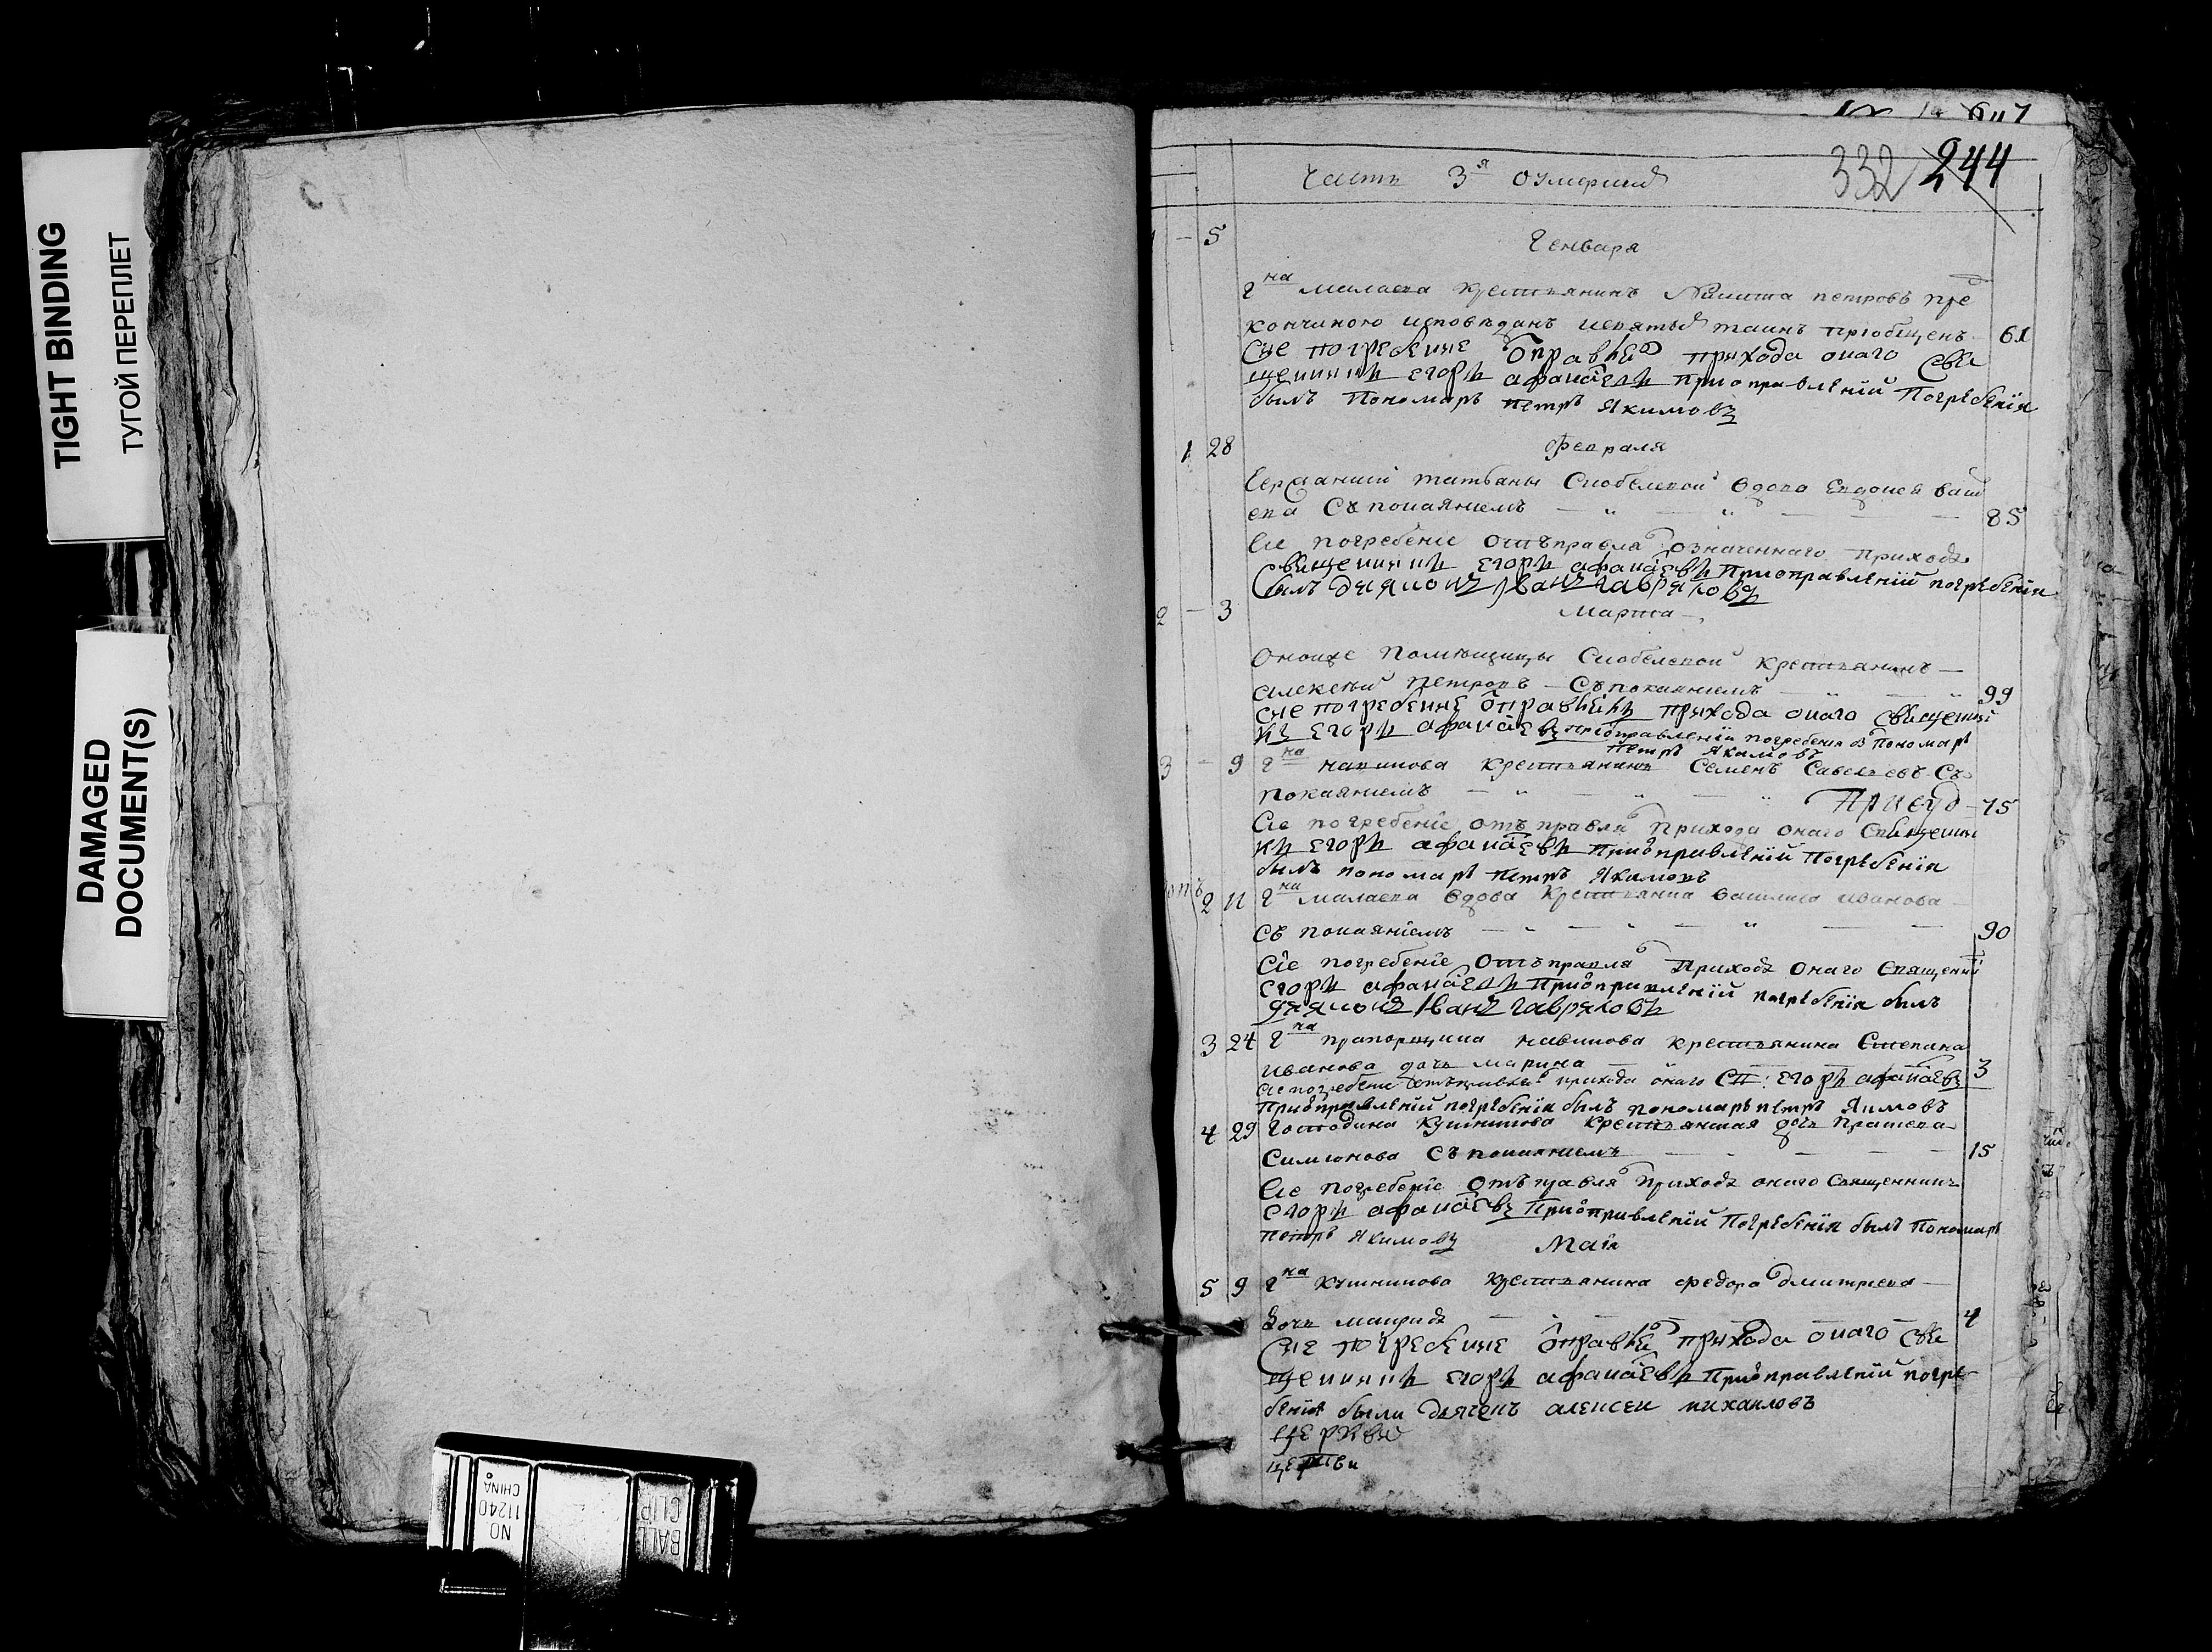 TIGHT BINDING
ТУГОЙ ПЕРЕПЛЕТ
DAMAGED
DOCUMENT(S)
NO 11240
CHINA
BALL
CLIP
332 244
Часть 3я оумершихъ
5 Генваря
Гна малаева крестьянинъ Никита петровъ пре
кончиною исповѣданъ исвятыхъ таинъ приобщенъ 61
Сие погребение ѿправлѧ прихода онаго Свѧ
щенникъ егоръ афанасьевъ Приѿправлѣнiй Погрѣбѣнiя
былъ Пономарь петръ Якимовъ
1 28 Февраля
татьаны Скобелевой вдова Евдокея
ева Съ покаяниемъ 85
Сiе погребенiе Отъправлялъ означеннаго прихода
Свѧщенникъ егоръ афанасьевъ Приоправлѣнiй погрѣбѣнiя
былъ дияконъ Иванъ гавриловъ
2 3 Марта
Оноиже Помѣщицы Скобелевой крестьянинъ
алексѣй Петровъ Съпокаяниемъ 99
сие погребение ѿправлялъ прихода онаго Свѧщенни
къ егоръ афанасьевъ Приѿправлѣнiи погребения Пономарь
петръ Якимовъ
3 9 Гна навинова крестьянинъ Семенъ Савельевъ Съ
покаяниемъ 75
Сiе погребенiе отъправлялъ Прихода онаго Священни
къ егоръ афанасьевъ Приѿправлѣнiй Погрѣбѣнiя
былъ пономарь петръ Якимовъ
2 11 Гна малаева вдова Крестьянка василиса иванова
съ покаянiемъ 90
Сiе погребенiе Отъправлялъ Прихода Онаго Священни
егоръ афанасьевъ Приѿправлѣнiй погрѣбѣнiя былъ
дияконъ Иванъ гавриловъ
3 24 Гна прапорщика навинова крестьянина Степана
иванова дочь марина 3
Сiе погребени отъправлялъ прихода онаго СП: егоръ афанасьевъ
Приѿправлѣнiй погрѣбѣнiя былъ пономарь петръ Якимовъ
4 29 Господина Кушникова Крестьянская дочь Праскева
Симионова Съ покаяниемъ 15
Сiе погребенiе Отъправлялъ Прихода онаго Священникъ
егоръ афанасьевъ Приѿправлѣнiй Погрѣбѣнiя былъ Пономарь
петръ Якимовъ Маiя
5 9 Гна Кушникова крестьянина федора дмитриева
дочь мавриа 4
Сие погребение ѿправлялъ прихода онаго Свѧ
щенникъ егоръ афанасьевъ Приѿправлѣнiй погрѣ
бѣнiя были дьяченъ алексеи михаиловъ
церкви